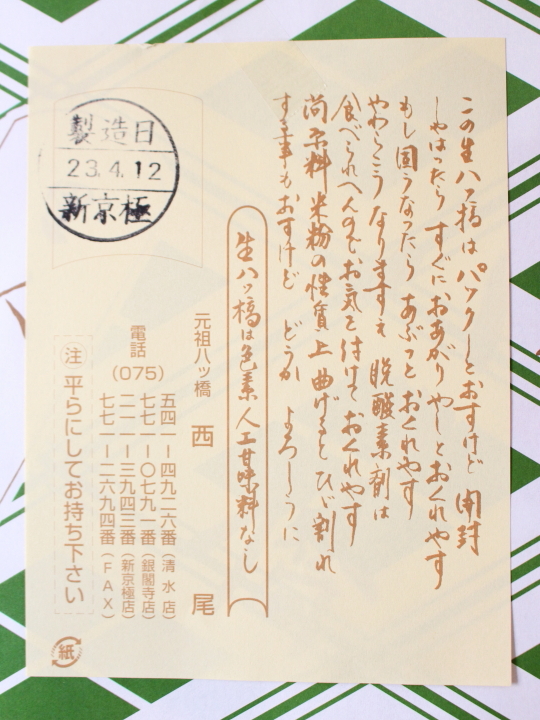 この生八ッ橋は パックしとおすけど 開封
しやはったら すぐにおあがりやしとおくれやす
もし固うなったら あぶっとおくれやす
やわらこうなりますえ 脱酸素剤は
食べられへんのでお気を付けておくれやす
尚原料米粉の性質上曲げるとひび割れ
する事もおすけど どうか よろしうに
生八ッ橋は色素人工甘味料なし
元祖八ッ橋 西尾
電話(075)
五四一―四九二六番(清水店)
七七一―〇七九一番(銀閣寺店)
二一一―三九四三番(新京極店)
七七一―二六九四番(FAX)
注 平らにしてお持ち下さい
製造日
23.4.12
新京極
紙